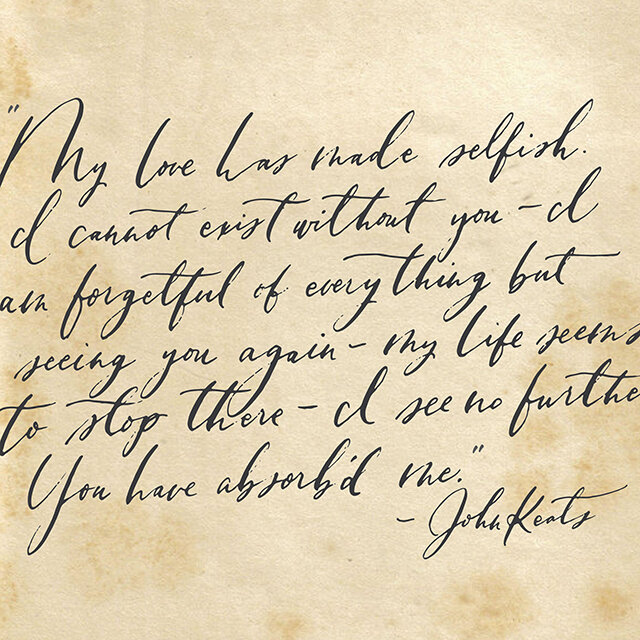 "My love has made selfish.
I cannot exist without you – I
am forgetful of everything but
seeing you again – my life seems
to stop there – I see no furthe
You have absorb'd me."
– John Keats